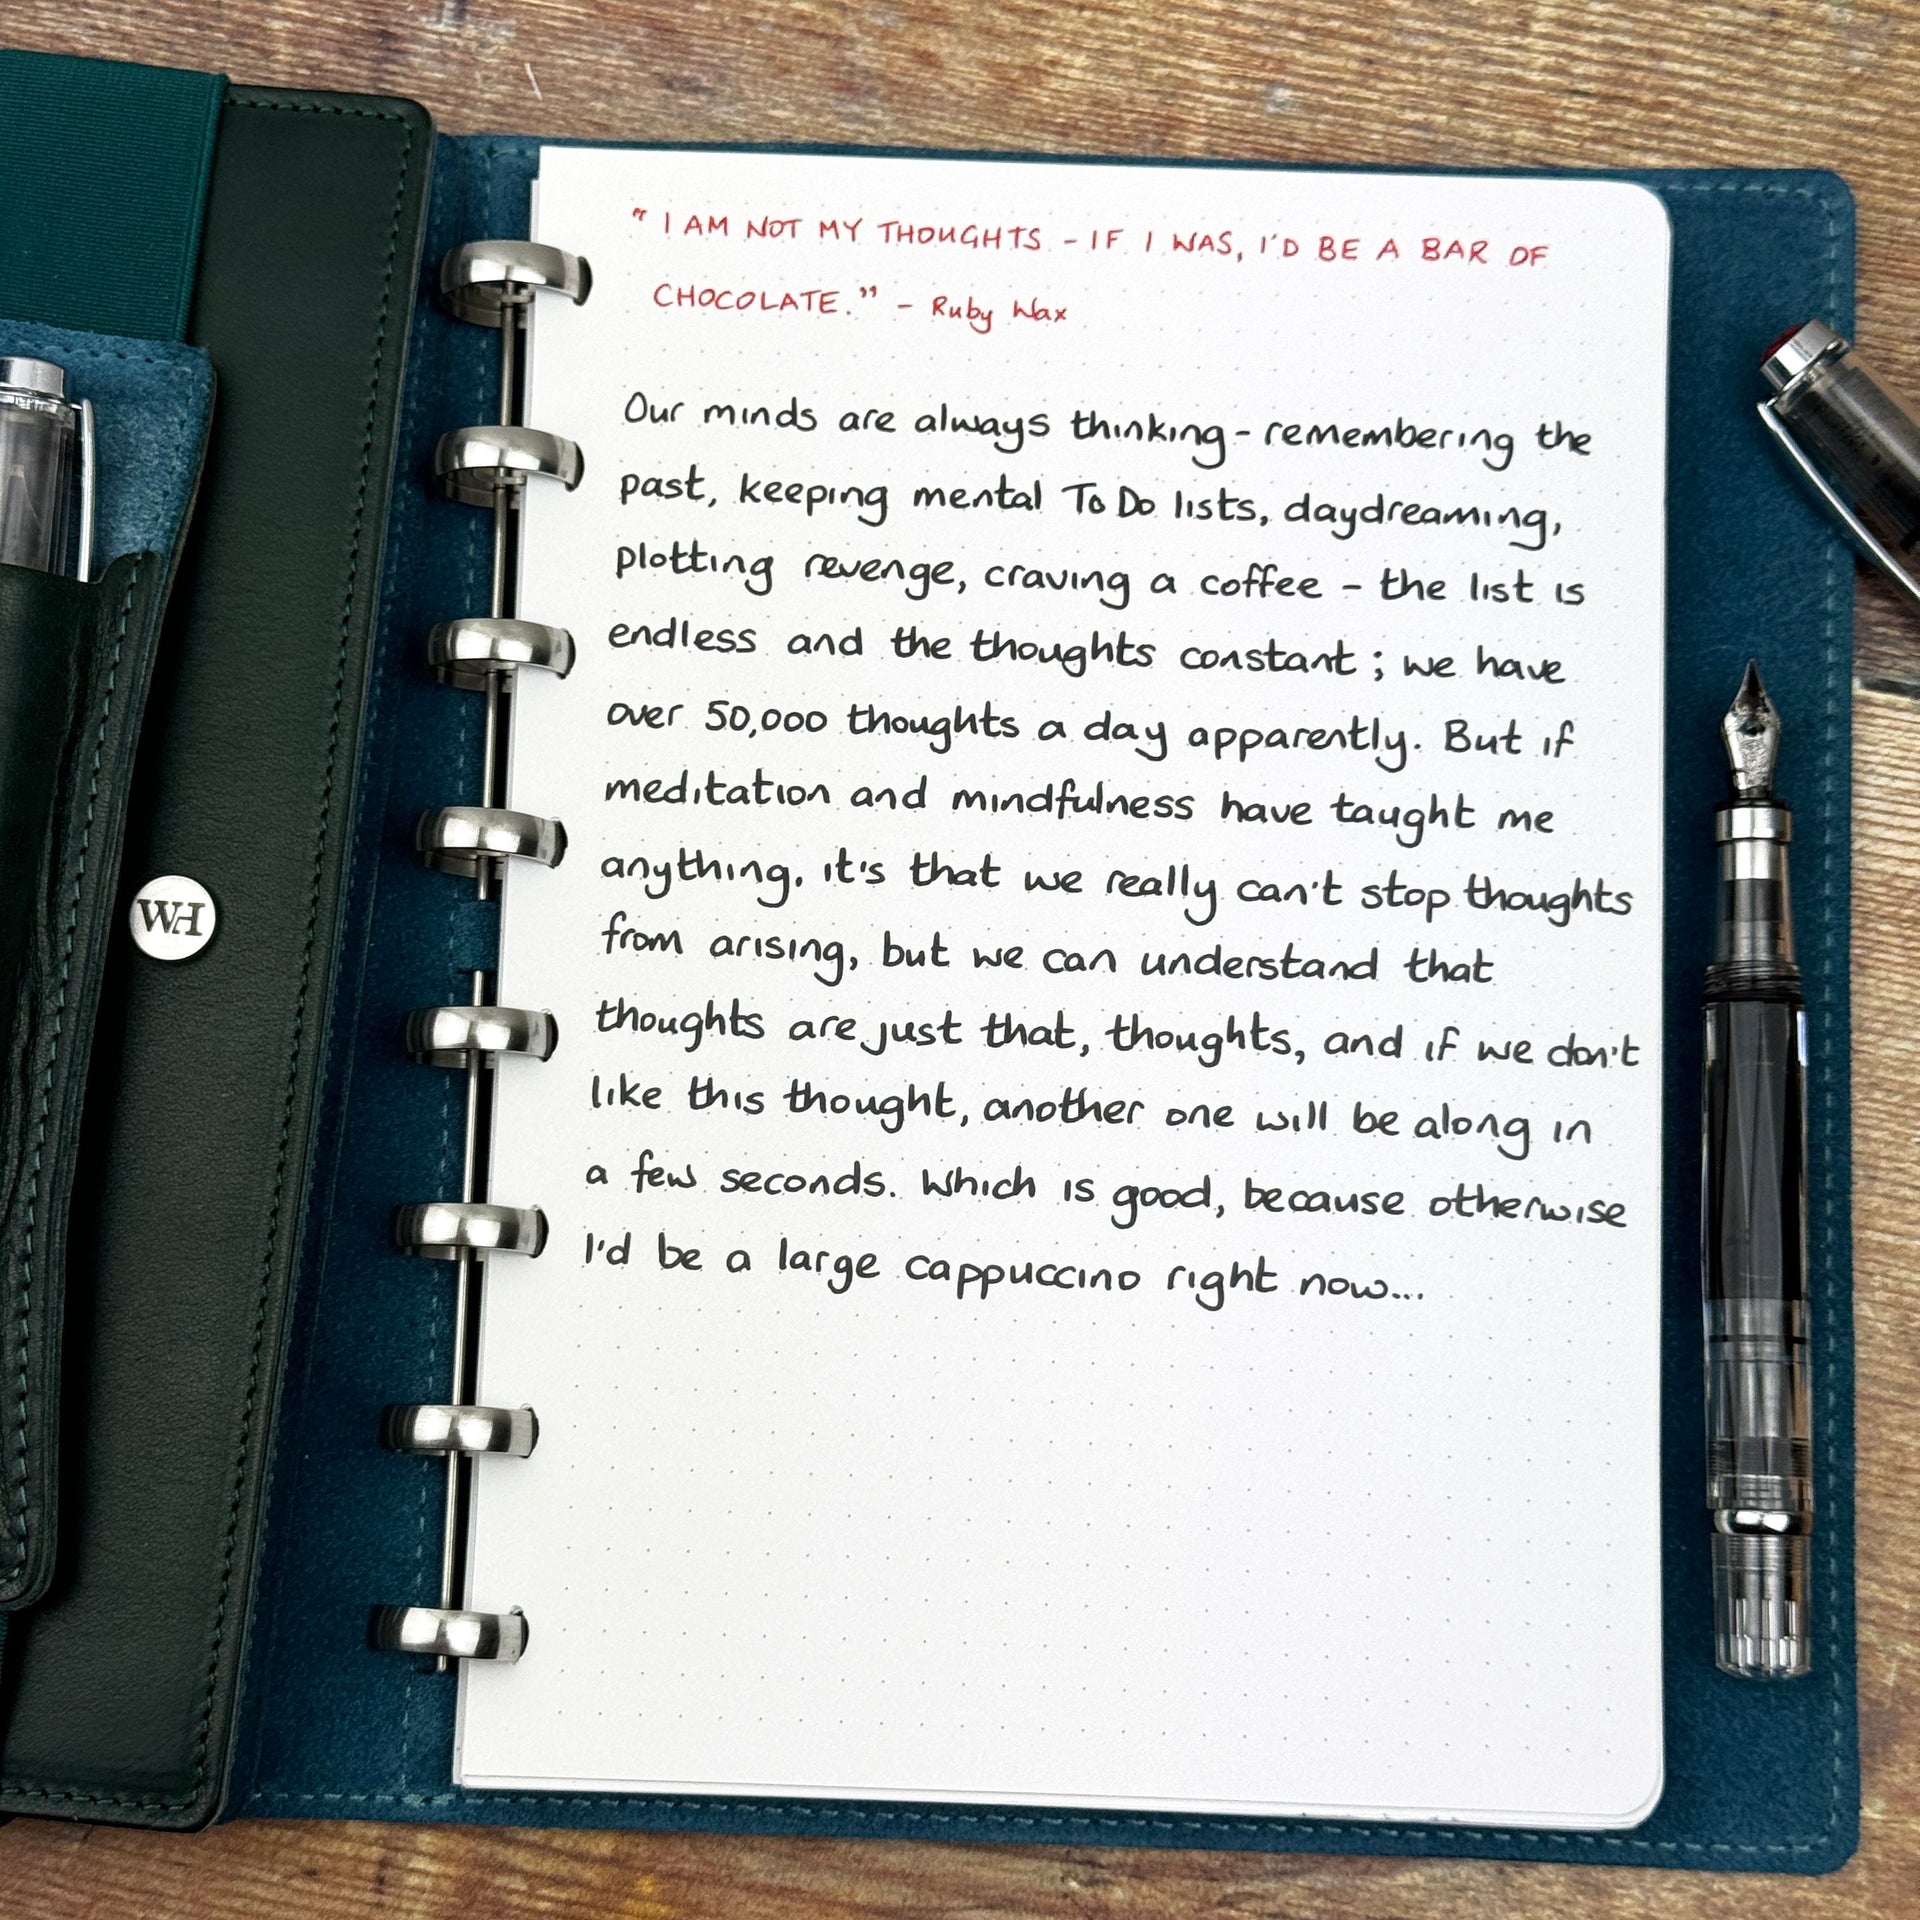 " I AM NOT MY THOUGHTS - IF I WAS, I'D BE A BAR OF
CHOCOLATE." - Ruby Wax
Our minds are always thinking - remembering the
past, keeping mental To Do lists, daydreaming,
plotting revenge, craving a coffee - the list is
endless and the thoughts constant ; we have
over 50,000 thoughts a day apparently. But if
meditation and mindfulness have taught me
anything, it's that we really can't stop thoughts
from arising, but we can understand that
thoughts are just that, thoughts, and if we don't
like this thought, another one will be along in
a few seconds. Which is good, because otherwise
I'd be a large cappuccino right now...
WH